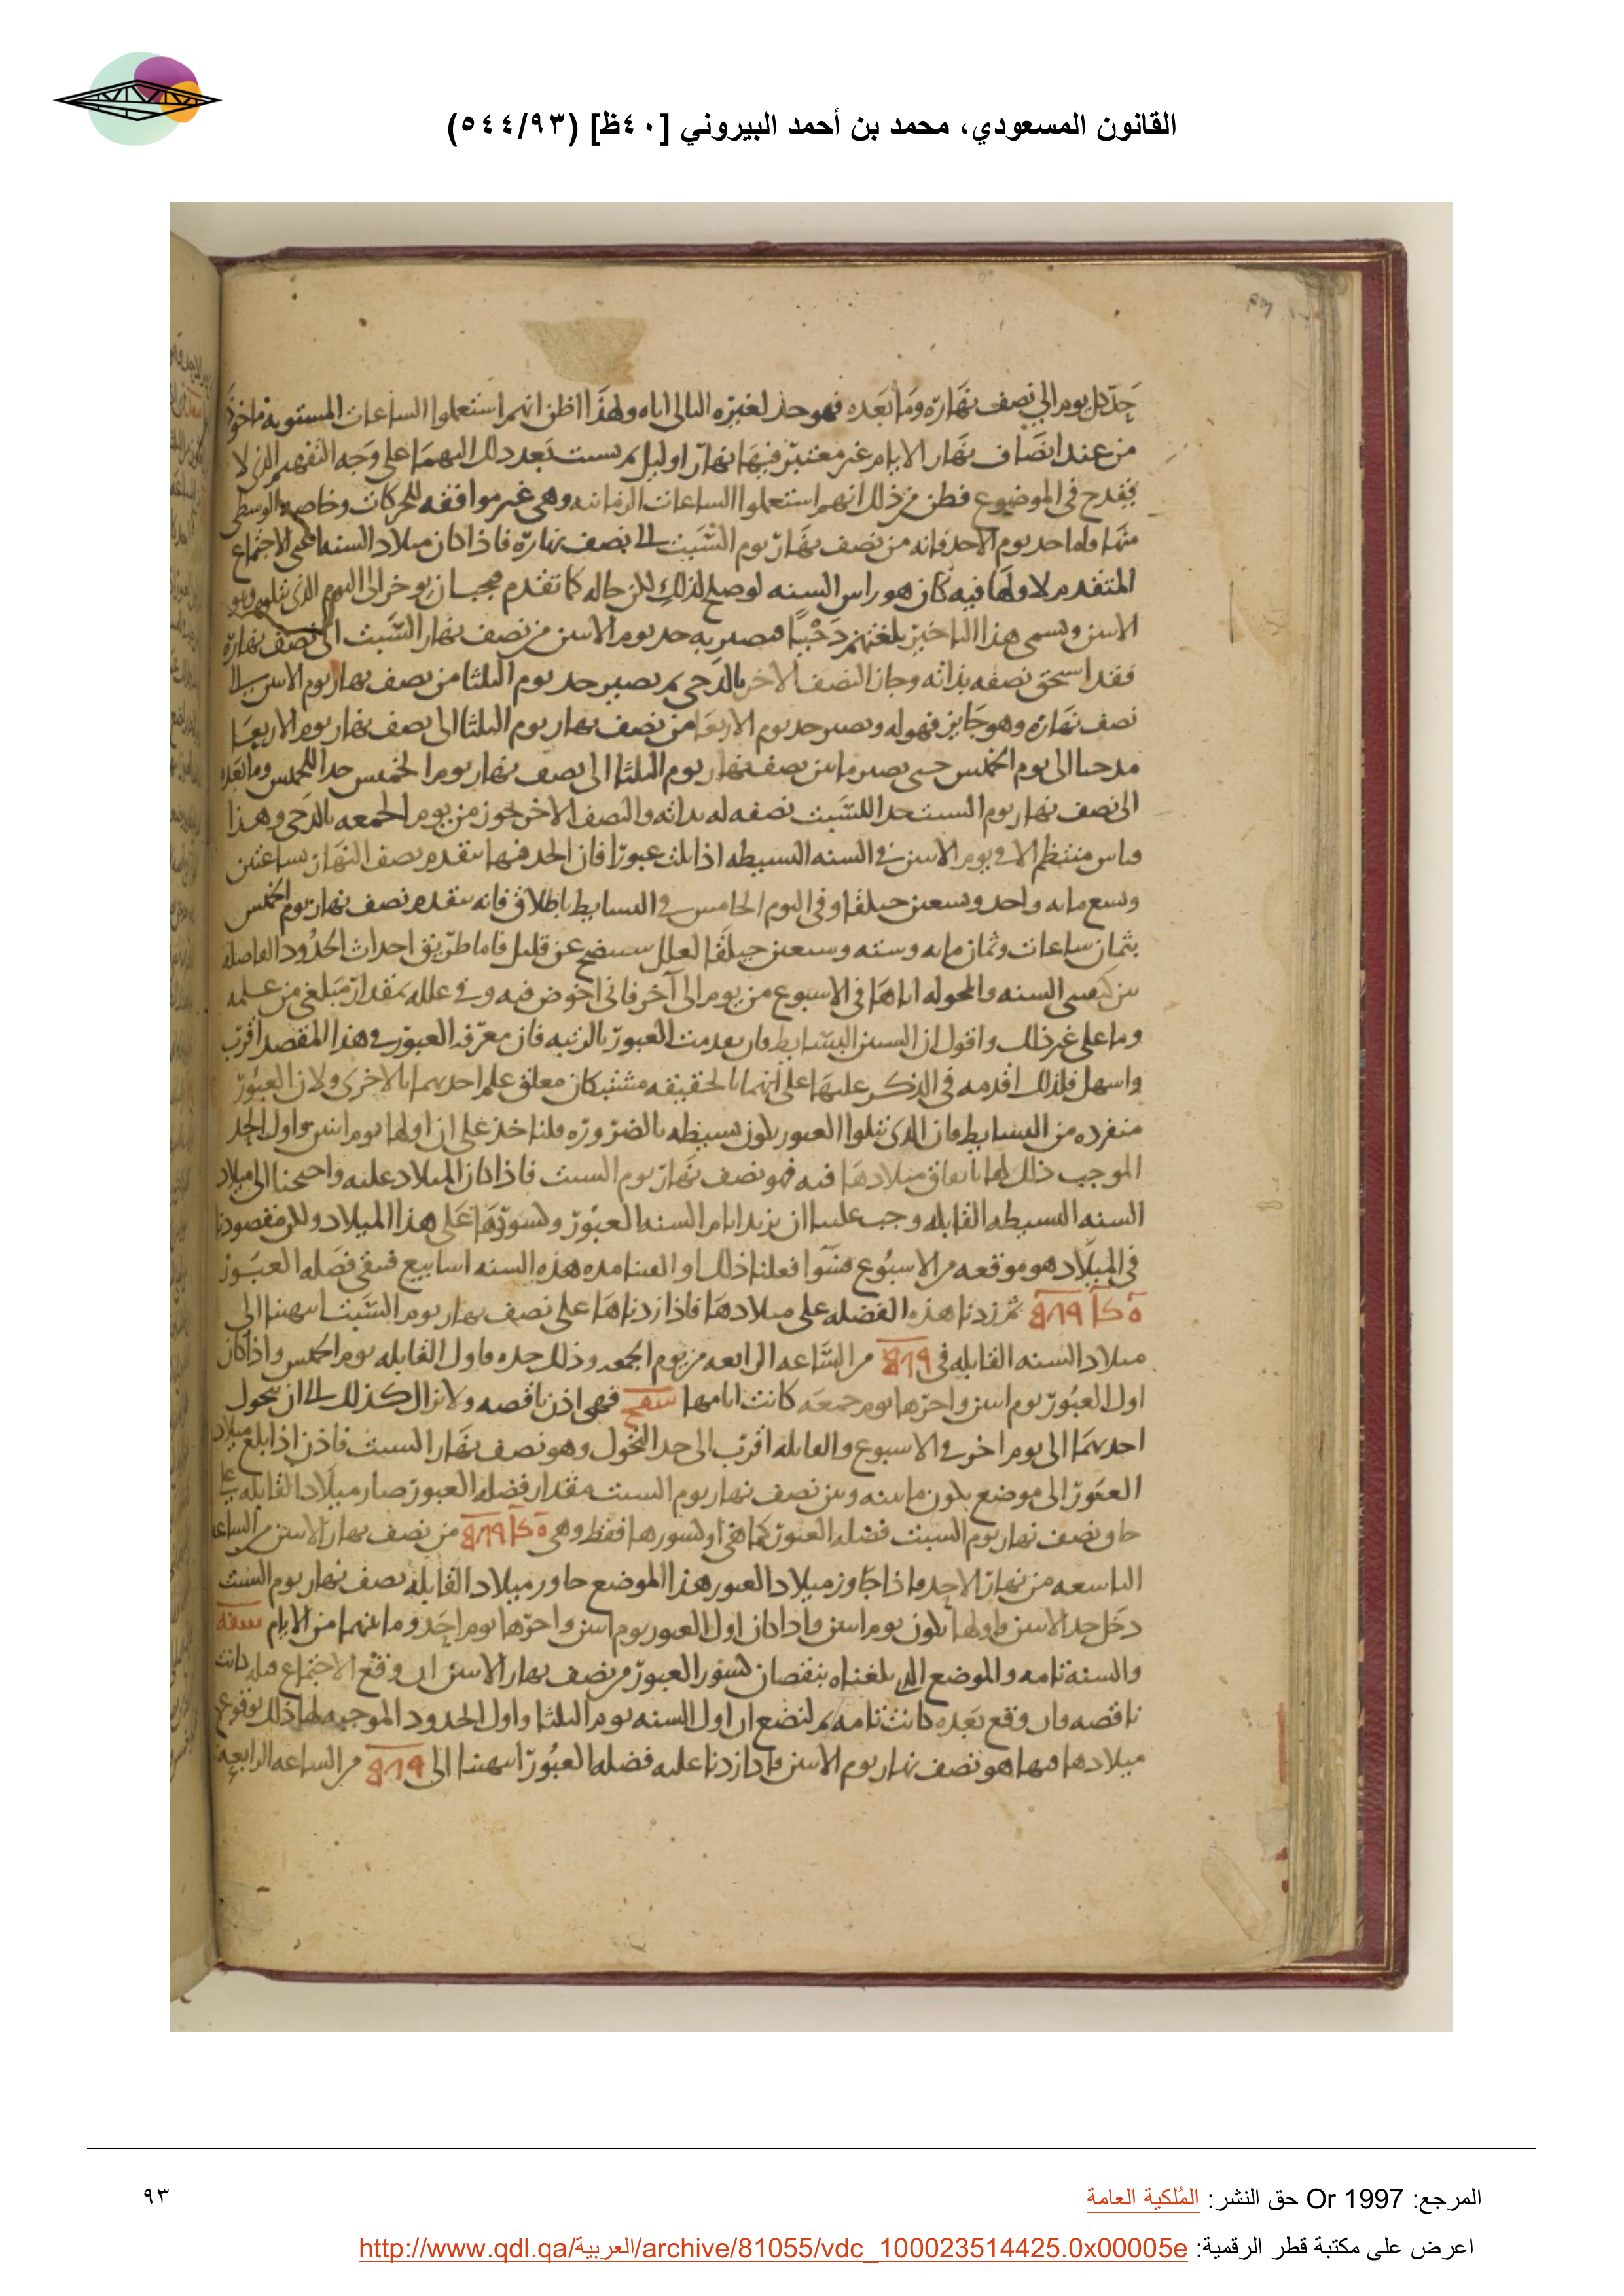 القانون المسعودي، محمد بن أحمد البيروني [٤٠ظ] (٥٤٤/٩٣)
حد كل يوم الى نصف نهاره وما بعده فهو حد لغيره التالى اياه ولهذا اظن انهم استعملوا الساعات المستوية ماخوذة
من عند انصاف نهار الايام غير معتبر فيها نهار او ليل ثم نسبت بعد ذلك اليهما على وجه التفهيم الذى لا
يقدح فى الموضوع فظن من ذلك انهم استعملوا الساعات الزمانيه وهى غير موافقه للحركات وخاصه الوسطى
منها واما حد يوم الاحد فانه من نصف نهار يوم السبت الى نصف نهاره فاذا كان ميلاد السنه اعنى الاجتماع
المتقدم لاولها فيه كان هو راس السنه لو صلح لذلك لكن حاله كما تقدم فيجب ان يوخر الى اليوم الذى يتلوه وهو
الاثنين ويسمى هذا التاخير بلغتهم دحيا فيصير به حد يوم الاثنين من نصف نهار السبت الى نصف نهاره
فقد استحق نصفه بذاته وحاز النصف الاخر بالدحى ثم يصير حد يوم الثلثا من نصف نهار يوم الاثنين الى
نصف نهاره وهو جايز فهو له ويصير حد يوم الاربعا من نصف نهار يوم الثلثا الى نصف نهار يوم الاربعا
مدحيا الى يوم الخميس حتى يصير ما بين نصف نهار يوم الثلثا الى نصف نهار يوم الخميس حدا للخميس وما بعده
الى نصف نهار يوم السبت حدا للسبت نصفه له بذاته والنصف الاخر يجوز من يوم الجمعه بالدحى وهذا
قياس منتظم الا فى يوم الاثنين فى السنه البسيطه اذا تلت عبورا فان الحد فيها يتقدم نصف النهار بساعتين
وتسع مايه واحد وتسعين حيلقا وفى اليوم الخامس فى البسايط باطلاق فانه يتقدم نصف نهار يوم الخميس
بثمان ساعات وثمان مايه وسته وسبعين حيلقا لعلل سيتضح عن قليل فاما طريق احداث الحدود الفاصله
بين كيفيتى السنه والمحوله اياها فى الاسبوع من يوم الى آخر فانى اخوض فيه وفى علله بمقدار مبلغى من علمه
وما على غير ذلك واقول ان السنين البسايط وان تقدمت العبور بالرتبه فان معرفه العبور فى هذا المقصد اقرب
واسهل فلذلك اقدمه فى الذكر عليها على انهما بالحقيقه مشتبكان معلق علم احديهما بالاخرى ولان العبور
منفرده من البسايط فان الذى يتلوا العبور يكون بسيطه بالضروره فلناخذ على ان اولها يوم اثنين واول الحد
الموجب ذلك لها باتفاق ميلادها فيه فهو نصف نهار يوم السبت فاذا كان الميلاد عليه واحتجنا الى ميلاد
السنه البسيطه القابله وجب علينا ان نزيد ايام السنه العبور وكسورها على هذا الميلاد ولكن مقصودنا
فى الميلاد هو موقعه من الاسبوع فسوا فعلنا ذلك او القينا مده هذه السنه اسابيع فتبقى فضله العبور
ثم زدنا هذه الفضله على ميلادها فاذا زدناها على نصف نهار يوم السبت انتهينا الى
ميلاد السنه القابله فى من الساعه الرابعه من يوم الجمعه وذلك حده فاول القابله يوم الخميس واذا كان
اول العبور يوم اثنين واخرها يوم جمعه كانت ايامها شفح فهى اذن ناقصه ولا تزال كذلك الى ان يتحول
احديهما الى يوم اخر فى الاسبوع والقابله اقرب الى حد التحول وهو نصف نهار السبت فاذن اذا بلغ ميلاد
العبور الى موضع يكون ما بينه وبين نصف نهار يوم السبت مقدار فضله العبور صار ميلاد القابله على
نصف نهار يوم السبت فضله العبور كما هى او كسورها فقط وهى من نصف نهار الاثنين من الساعه
التاسعه من نهار الاحد فاذا جاوز ميلاد العبور هذا الموضع جاوز ميلاد القابله نصف نهار يوم السبت
دخل حد الاثنين واولها يكون يوم اثنين واذا كان اول العبور يوم اثنين واخرها يوم احد وما بينهما من الايام شفه
والسنة تامه والموضع الذى بلغناه بنقصان كسور العبور من نصف نهار الاثنين ان وقع الاجتماع قبله كانت
ناقصه وان وقع بعده كانت تامه ثم لنضع ان اول السنه يوم الثلثا واول الحدود الموجبه لها ذلك بوقوع
ميلادها فيها هو نصف نهار يوم الاثنين واذا زدنا عليه فضله العبور انتهينا الى من الساعه الرابعه
المرجع: Or 1997 حق النشر: المُلكية العامة
٩٣
اعرض على مكتبة قطر الرقمية: http://www.qdl.qa/العربية/archive/81055/vdc_100023514425.0x00005e